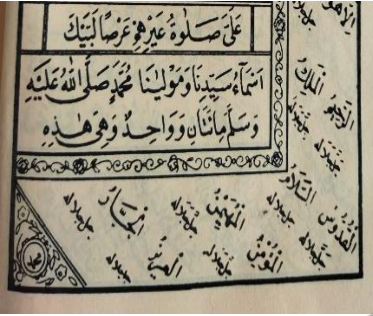 عَلَىَّ صَلٰوةُ غَيْرِهِمْ عَرْضًا لَبَيْكَ
اَسْمَآءُ سَيِّدِنَا وَمَوْلٰينَا مُحَمَّدٍ صَلَّى اللهُ عَلَيْهِ
وَسَلَّمَ مِائَتَانِ وَوَاحِدٌ وَهِىَ هٰذِهِ
الرَّحِيْمُ جل جلاله
الْمَلِكُ جل جلاله
الْقُدُّوْسُ جل جلاله
السَّلَامُ جل جلاله
الْمُؤْمِنُ جل جلاله
الْمُهَيْمِنُ جل جلاله
الْعَزِيْزُ جل جلاله
الْجَبَّارُ جل جلاله